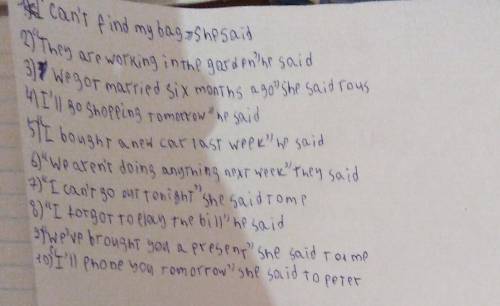 1)"I can't find my bag" she said
2)"They are working in the garden" he said
3)"We got married six months ago" she said to us
4)I'll go shopping tomorrow" he said
5)"I bought a new car last week" he said
6)"We aren't doing anything next week" they said
7)"I can't go out tonight" she said to me
8)"I forgot to play the bill" he said
9)"We've brought you a present" she said to me
10)"I'll phone you tomorrow" she said to peter